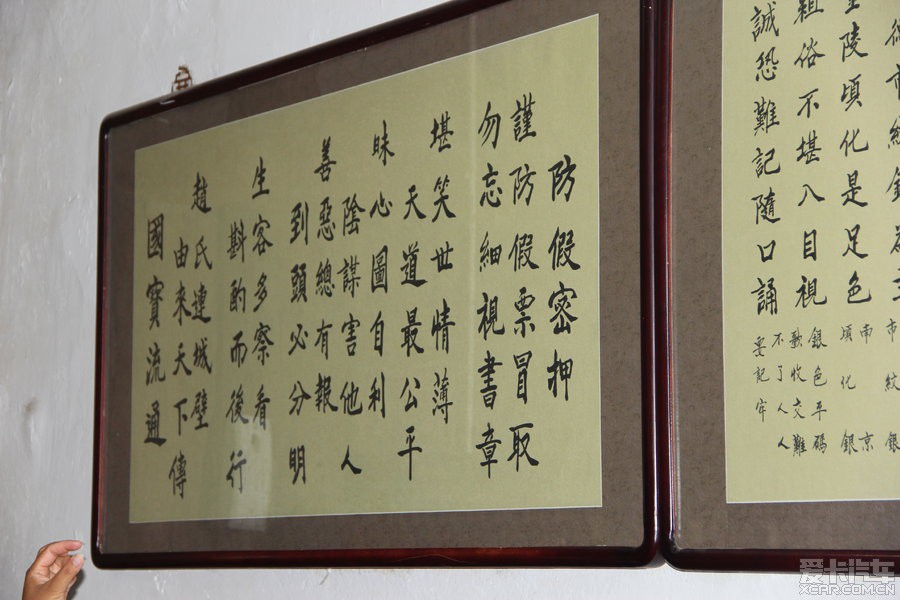 市紋銀
市紋銀
陵頃化是足色
南京
頃化銀
俗不堪入目視
銀色平碼
歌收交難
不了人人
誠恐難記隨口誦
要記牢
防假密押
謹防假票冒取
勿忘細視書章
堪笑世情薄
天道最公平
昧心圖自利
陰謀害他人
善惡總有報
到頭必分明
生客多察看
斟酌而後行
趙氏連城壁
由來天下傳
國寶流通
爱卡汽车
XCAR.COM.CN